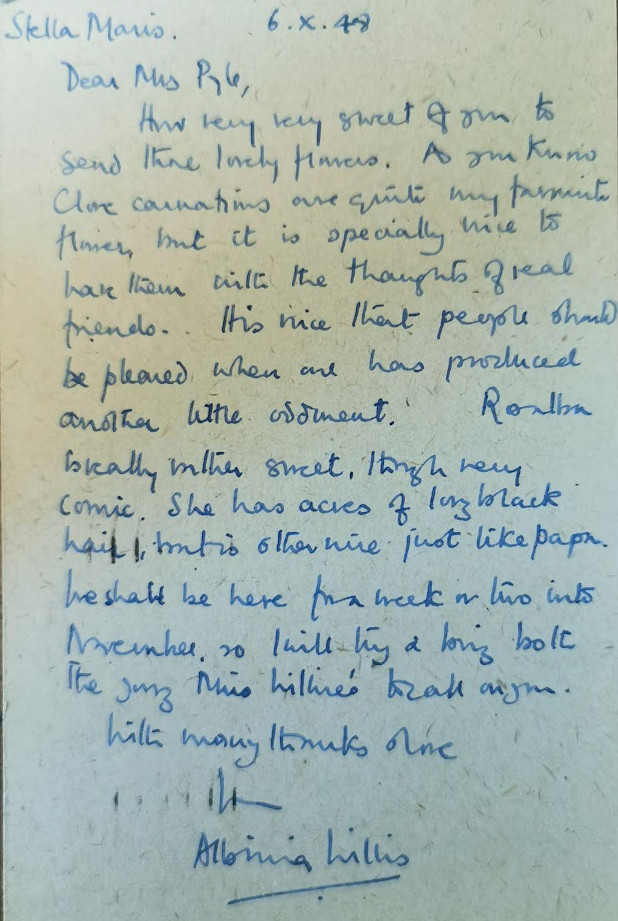 Stella Maris. 6.X.48
Dear Mrs Pyle,
How very very sweet of you to
send those lovely flowers. As you know
Clove carnations are quite my favourite
flower, but it is specially nice to
have them with the thoughts of real
friends. It is nice that people should
be pleased when one has produced
another little oddment. Rosalba
is really rather sweet, though very
comic. She has acres of long black
hair, but is otherwise just like papa.
We shall be here for a week or two into
November, so I will try & bring both
the young Miss Willis's to call on you.
With many thanks & love
Albinia Willis